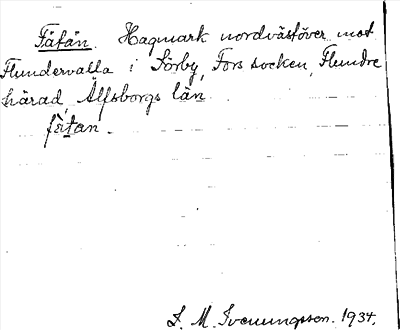 Fätån. Hagmark nordvästöver mot
Flundervalla i Sörby, Fors socken, Flundre
härad, Älfsborgs län.
fätan.
1934.